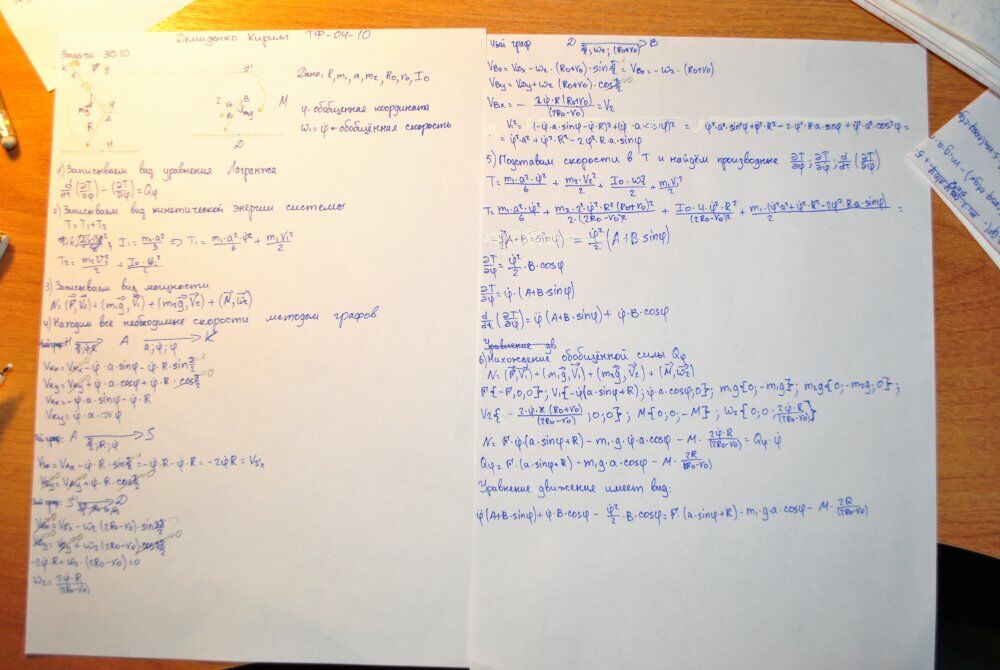 Демиденко Кирилл ТФ-04-10
Задача 30.10
Дано: R, m₁, a, m₂, R₀, r₀, I₀
φ - обобщенная координата
ω₁ = φ̇ - обобщённая скорость
1) Записываем вид уравнения Лагранжа
d/dt (∂T/∂φ̇) - (∂T/∂φ) = Qφ
2) Записываем вид кинетической энергии системы
T = T₁ + T₂
I₁ = m₁·a²/3 ⇒ T₁ = m₁·a²·φ̇²/6 + m₁V₁²/2
T₂ = m₂V₂²/2 + I₀·φ̇₂²/2
3) Записываем вид мощности
N = (F⃗, V⃗₁) + (m₁g⃗, V⃗₁) + (m₂g⃗, V⃗₂) + (M⃗, ω⃗₂)
4) Находим все необходимые скорости методом графов
A a; φ; φ̇ K
Vкx = Vнx - φ̇·a·sinφ - φ̇·R·sin π/2
Vкy = Vнy + φ̇·a·cosφ + φ̇·R·cos π/2
Vкx = -φ̇·a·sinφ - φ̇·R
Vкy = φ̇·a·cosφ
граф: A π/2; R; φ̇ S
Vsx = VAx - φ̇·R·sin π/2 = -φ̇·R - φ̇·R = -2φ̇R = Vs'x
Vsy = VAy + φ̇·R·cos π/2
граф: S' D
VDx = Vs'x - ω₂(2R₀-r₀)·sin 3π/2
VDy = Vs'y + ω₂(2R₀-r₀)·cos 3π/2
-2φ̇·R + ω₂·(2R₀-r₀) = 0
ω₂ = 2φ̇·R/(2R₀-r₀)
граф D π/2; ω₂; (R₀+r₀) B
VBx = VDx - ω₂·(R₀+r₀)·sin π/2 = VBx = -ω₂·(R₀+r₀)
VBy = VDy + ω₂(R₀+r₀)·cos π/2
VBx = - 2φ̇·R(R₀+r₀)/(2R₀-r₀) = V₂
V₁² = (-φ̇·a·sinφ - φ̇·R)² + (φ̇·a·cosφ)² = φ̇²·a²·sin²φ + φ̇²·R² + 2·φ̇²·R·a·sinφ + φ̇²·a²·cos²φ =
= φ̇²·a² + φ̇²·R² - 2φ̇²·R·a·sinφ
5) Подставим скорости в T и найдём производные ∂T/∂φ; ∂T/∂φ̇; d/dt (∂T/∂φ̇)
T = m₁·a²·φ̇²/6 + m₂·V₂²/2 + I₀·ω₂²/2 + m₁V₁²/2
T = m₁·a²·φ̇²/6 + m₂·2²·φ̇²·R²(R₀+r₀)²/2·(2R₀-r₀)² + I₀·4·φ̇²·R²/(2R₀-r₀)² + m₁·(φ̇²·a²+φ̇²·R²-2φ̇²·R·a·sinφ)/2 =
= φ̇²/2 (A+B·sinφ)
∂T/∂φ = φ̇²/2·B·cosφ
∂T/∂φ̇ = φ̇·(A+B·sinφ)
d/dt (∂T/∂φ̇) = φ̈(A+B·sinφ) + φ̇·B·cosφ
Уравнение дв
6) Нахождение обобщённой силы Qφ
N = (F⃗, V⃗₁) + (m₁g⃗, V⃗₁) + (m₂g⃗, V⃗₂) + (M⃗, ω⃗₂)
F{-F,0,0}; V₁{-φ̇(a·sinφ+R); φ̇·a·cosφ,0}; m₁g{0;-m₁g}; m₂g{0;-m₂g;0};
V₂{- 2·φ̇·R(R₀+r₀)/(2R₀-r₀); 0; 0}; M{0;0;-M}; ω₂{0;0; 2φ̇·R/(2R₀-r₀)}
N = F·φ̇·(a·sinφ+R) - m₁·g·φ̇·a·cosφ - M· 2φ̇·R/(2R₀-r₀) = Qφ·φ̇
Qφ = F·(a·sinφ+R) - m₁g·a·cosφ - M· 2R/(2R₀-r₀)
Уравнение движения имеет вид:
φ̈(A+B·sinφ) + φ̇·B·cosφ - φ̇²/2·B·cosφ = F·(a·sinφ+R) - m₁·g·a·cosφ - M· 2R/(2R₀-r₀)